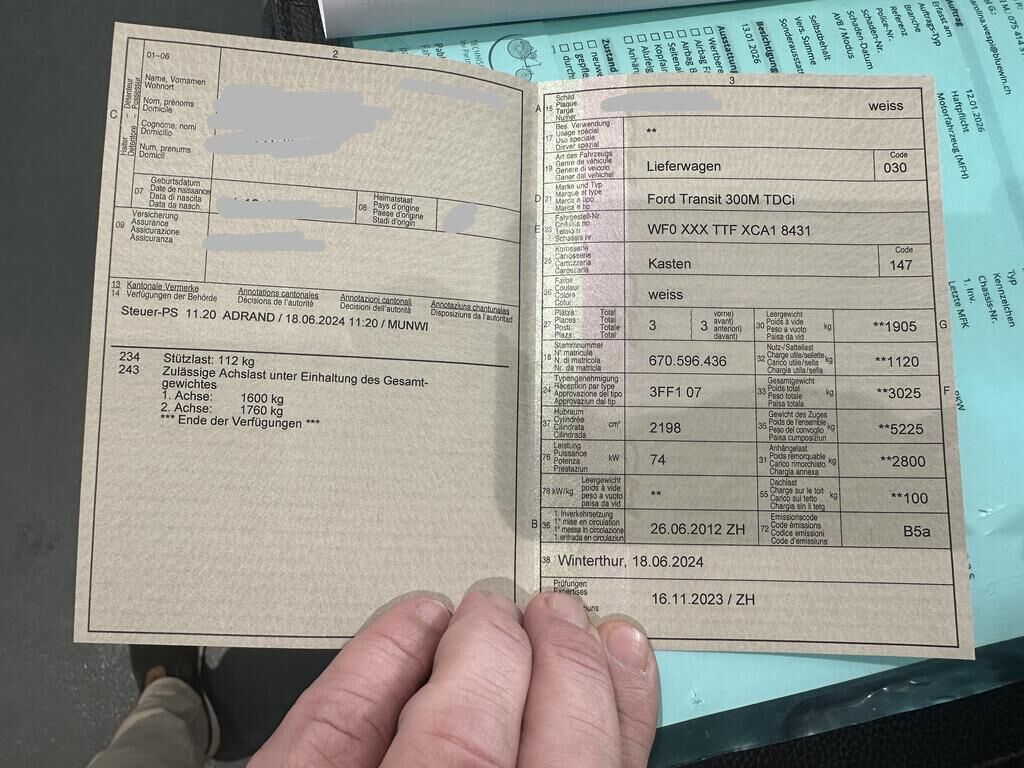 2
01-06
Name, Vornamen
Wohnort
Nom, prénoms
Domicile
Cognome, nomi
Domicilio
Num, prenums
Domicil
C
Halter Détenteur
Detentore Possessur
07
Geburtsdatum
Date de naissance
Data di nascita
Data da nasch.
08
Heimatstaat
Pays d'origine
Paese d'origine
Stadi d'origin
09
Versicherung
Assurance
Assicurazione
Assicuranza
13
14
Kantonale Vermerke
Verfügungen der Behörde
Annotations cantonales
Décisions de l'autorité
Annotazioni cantonali
Decisioni dell'autorità
Annotaziuns chantunalas
Disposiziuns da l'autoritad
Steuer-PS 11.20 ADRAND / 18.06.2024 11:20 / MUNWI
234 Stützlast: 112 kg
243 Zulässige Achslast unter Einhaltung des Gesamt-
gewichtes
1. Achse: 1600 kg
2. Achse: 1760 kg
*** Ende der Verfügungen ***
3
A 15
Schild
Plaque
Targa
Numer
weiss
17
Bes. Verwendung
Usage spécial
Uso speciale
Diever spezial
**
19
Art des Fahrzeugs
Genre de véhicule
Genere di veicolo
Gener dal vehichel
Lieferwagen
Code
030
D 21
Marke und Typ
Marque et type
Marca e tipo
Marca e tip
Ford Transit 300M TDCi
E 23
Fahrgestell-Nr.
Châssis no
Telaio n.
Schassis nr.
WF0 XXX TTF XCA1 8431
25
Karosserie
Carrosserie
Carrozzeria
Carossaria
Kasten
Code
147
26
Farbe
Couleur
Colore
Colur
weiss
27
Plätze: Total
Places: Total
Posti: Totale
Plazs: Total
3
( vorne)
3 avant)
anteriori)
davant)
30
Leergewicht
Poids à vide
Peso a vuoto
Paisa da vid
kg
**1905
G
18
Stammnummer
N° matricule
N. di matricola
Nr. da matricla
670.596.436
32
Nutz-/Sattellast
Charge utile/sellette
Carico utile/sella
Chargia utila/sella
kg
**1120
24
Typengenehmigung
Réception par type
Approvazione del tipo
Approvaziun dal tip
3FF1 07
33
Gesamtgewicht
Poids total
Peso totale
Paisa totala
kg
**3025
F
37
Hubraum
Cylindrée
Cilindrata
Cilindrada
cm³
2198
35
Gewicht des Zuges
Poids de l'ensemble
Peso del convoglio
Paisa cumposiziun
kg
**5225
76
Leistung
Puissance
Potenza
Prestaziun
kW
74
31
Anhängelast
Poids remorquable
Carico rimorchiato
Chargia annexa
kg
**2800
78 kW/kg
Leergewicht
poids à vide
peso a vuoto
paisa da vid
**
55
Dachlast
Charge sur le toit
Carico sul tetto
Chargia sin il tetg
kg
**100
B 36
1. Inverkehrsetzung
1re mise en circulation
1a messa in circolazione
1. entrada en circulaziun
26.06.2012 ZH
72
Emissionscode
Code émissions
Codice emissioni
Code d'emissiuns
B5a
38
Winterthur, 18.06.2024
Prüfungen
Expertises
16.11.2023 / ZH
Auftrag
Erfasst am
Auftrags-Typ
Branche
Referenz
Police-Nr.
Schaden-Nr.
Schaden-Datum
AVB / Modus
Selbstbehalt
Vers. Summe
Sonderausstattung
12.01.2026
Haftpflicht
Motorfahrzeug (MFH)
Besichtigung
13.01.2026
Ausstattung
Airbag
Zustand
Typ
Kennzeichen
Chassis-Nr.
1. Inv.
Letzte MFK